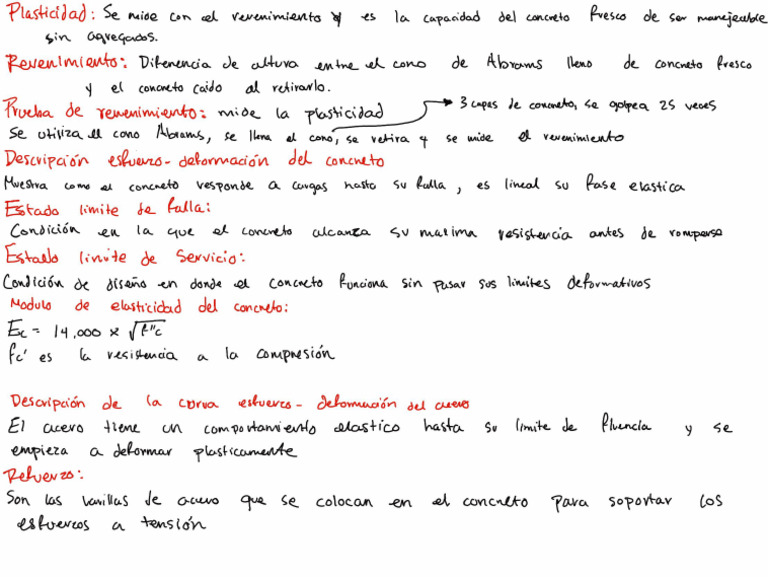 Plasticidad: Se mide con el revenimiento y es la capacidad del concreto fresco de ser manejeable
sin agregados.
Revenimiento: Diferencia de altura entre el cono de Abrams lleno de concreto fresco
y el concreto caido al retirarlo.
Prueba de revenimiento: mide la plasticidad
3 capas de concreto, se golpea 25 veces
Se utiliza el cono Abrams, se llena el cono, se retira y se mide el revenimiento
Descripción esfuerzo-deformación del concreto
Muestra como el concreto responde a cargas hasta su falla, es lineal su fase elastica
Estado limite de falla:
Condición en la que el concreto alcanza su maxima resistencia antes de romperse
Estado limite de Servicio:
Condición de diseño en donde el concreto funciona sin pasar sus limites deformativos
Modulo de elasticidad del concreto:
Ec = 14,000 x √f''c
fc' es la resistencia a la compresión
Descripción de la curva esfuerzo-deformación del acero
El acero tiene un comportamiento elastico hasta su limite de fluencia y se
empieza a deformar plasticamente
Refuerzo:
Son las varillas de acero que se colocan en el concreto para soportar los
esfuercos a tensión